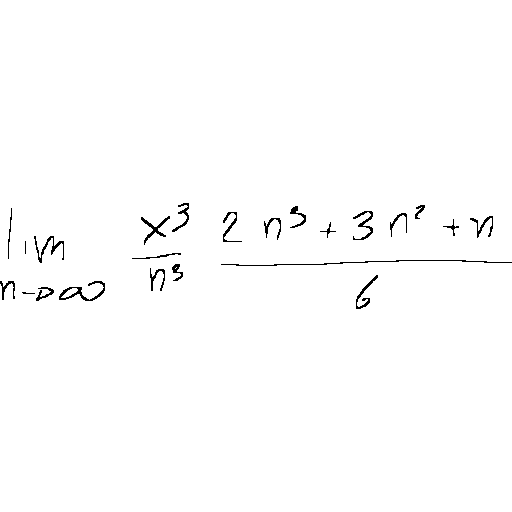 lim n→∞ x³/n³ (2n³ + 3n² + n)/6